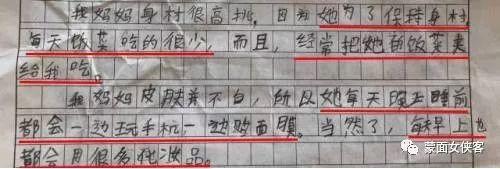 我妈妈身材很高挑。因为她为了保持身材
每天饭菜吃的很少,而且,经常把她的饭菜夹
给我吃。
我妈妈皮肤并不白,所以她每天晚上睡前
都会一边玩手机一边敷面膜。当然了,每早上也
都会用很多化妆品。
蒙面女侠客